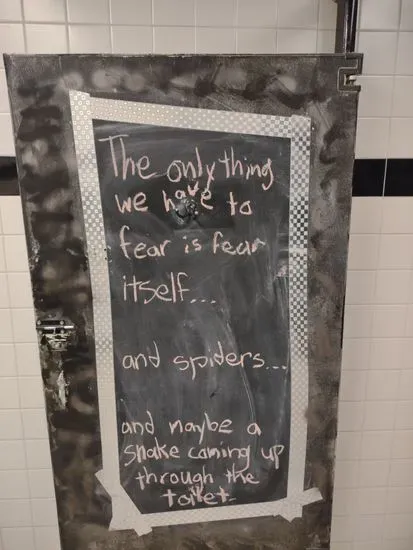 The only thing
we have to
fear is fear
itself...
and spiders...
and maybe a
snake coming up
through the
toilet.